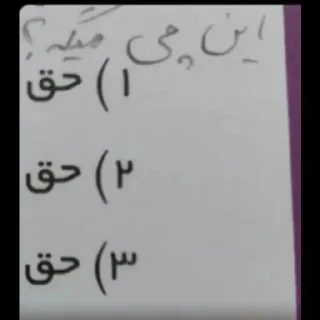 این چی میگه؟
۱) حق
۲) حق
۳) حق